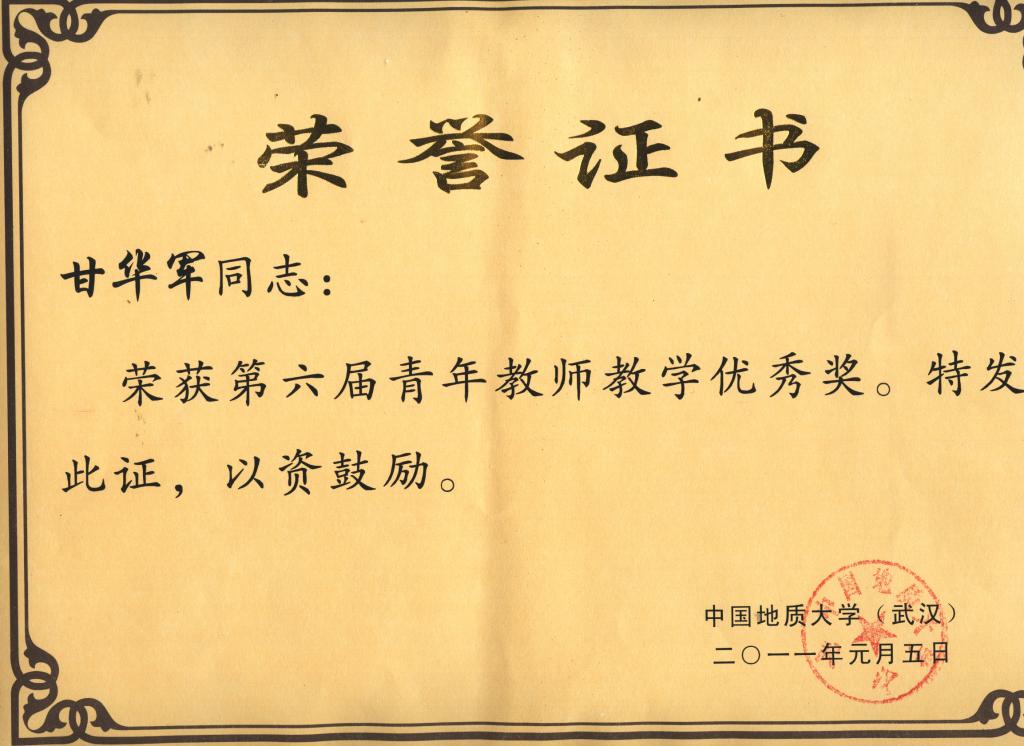 荣誉证书
甘华军同志：
荣获第六届青年教师教学优秀奖。特发
此证，以资鼓励。
中国地质大学（武汉）
二〇一一年元月五日